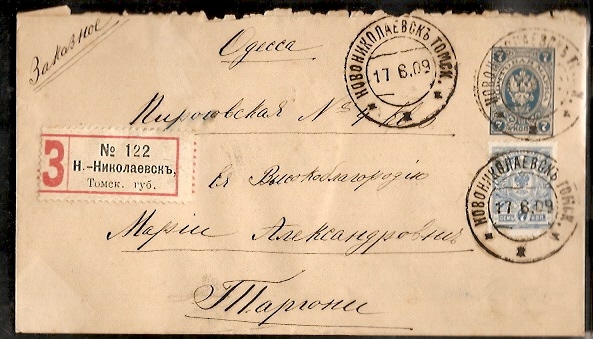 Заказное
Одесса
НОВОНИКОЛАЕВСКЪ ТОМСК.
17 6.09
7 7
7 КОП 7
Пироговская № 4
З
№ 122
Н.-Николаевскъ,
Томск. губ.
Ея Высокоблагородію
НОВОНИКОЛАЕВСКЪ ТОМСК.
17 6.09
Маріи Александровнѣ
Таргони